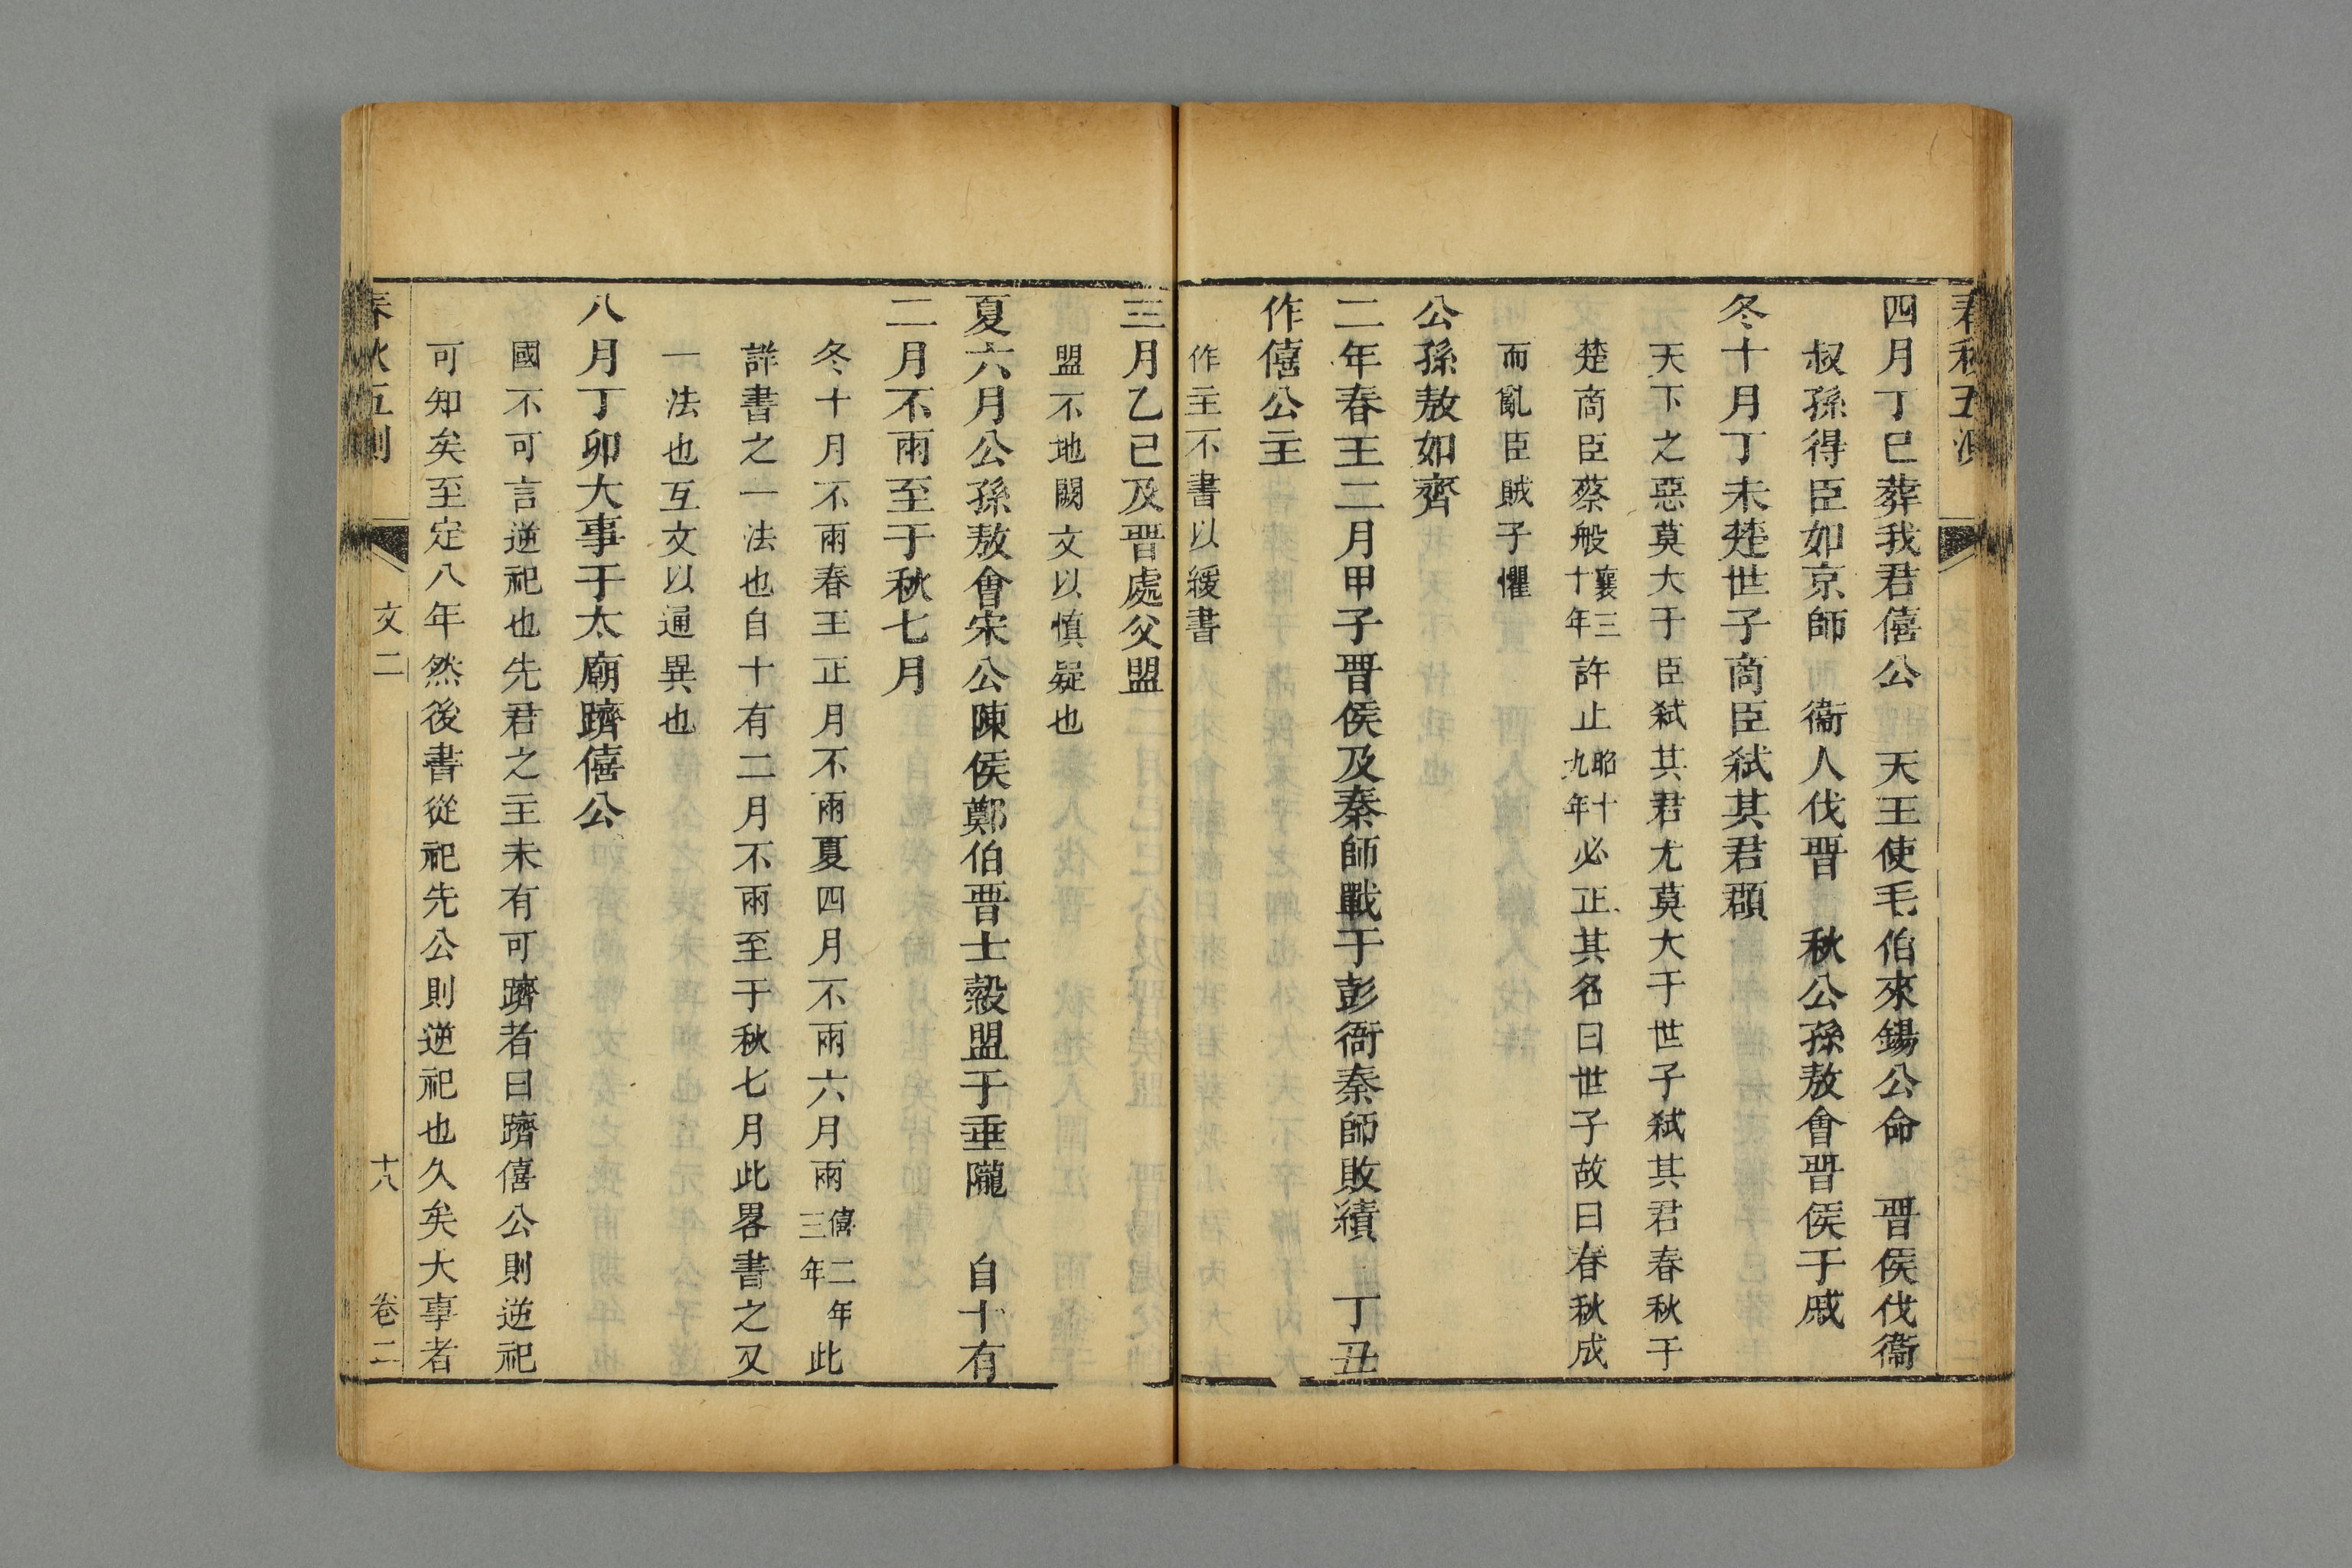 四月丁巳葬我君僖公　天王使毛伯來錫公命　晋侯伐衞
叔孫得臣如京師　衞人伐晋　秋公孫敖會晋侯于戚
冬十月丁未楚世子商臣弑其君頵
天下之惡莫大于臣弑其君尤莫大于世子弑其君春秋于
楚商臣蔡般襄三十年許止昭十九年必正其名曰世子故曰春秋成
而亂臣賊子懼
公孫敖如齊
二年春王二月甲子晋侯及秦師戰于彭衙秦師敗績　丁丑
作僖公主
作主不書以緩書
三月乙巳及晋處父盟
盟不地闕文以慎疑也
夏六月公孫敖會宋公陳侯鄭伯晋士縠盟于垂隴　自十有
二月不雨至于秋七月
冬十月不雨春王正月不雨夏四月不雨六月雨僖二年三年此
詳書之一法也自十有二月不雨至于秋七月此畧書之又
一法也互文以通異也
八月丁卯大事于太廟躋僖公
國不可言逆祀也先君之主未有可躋者曰躋僖公則逆祀
可知矣至定八年然後書從祀先公則逆祀也久矣大事者
文二　十八　卷二